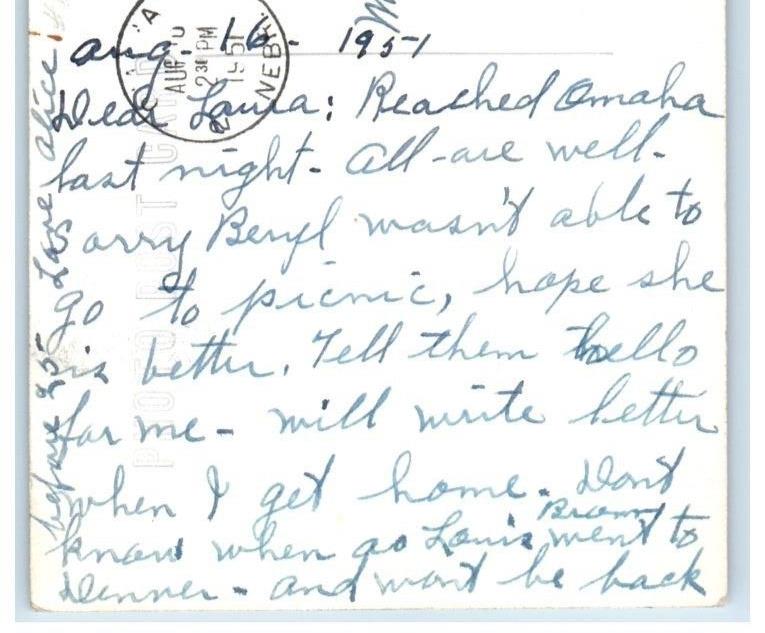 Aug. 16 - 1951
AUG
2 30 PM
1951
NEBR
Dear Laura: Reached Omaha
last night - All are well -
Sorry Beryl wasn't able to
go to picnic, hope she
is better. Tell them hello
for me - will write letter
when I get home. Dont
know when as Louis Brown went to
Denver - and wont be back
before 25- Love Alice
PHOTO POST CARD